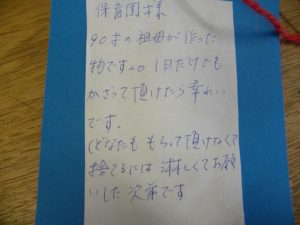 保育園様
90才の祖母が作った
物です。 1日だけでも
かざって頂けたら幸わい
です。
(どなたももらって頂けなくて
捨てるには淋しくてお願
いした次第です